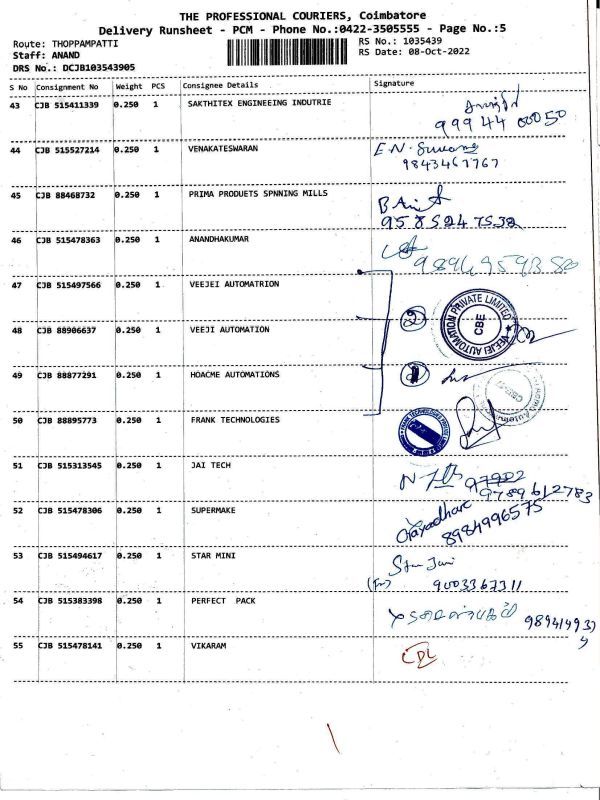 THE PROFESSIONAL COURIERS, Coimbatore
Delivery Runsheet - PCM - Phone No.:0422-3505555 - Page No.:5
Route: THOPPAMPATTI
RS No.: 1035439
Staff: ANAND
RS Date: 08-Oct-2022
DRS No.: DCJB103543905
S No Consignment No Weight PCS Consignee Details Signature
43 CJB 515411339 0.250 1 SAKTHITEX ENGINEEING INDUTRIE
99944 00050
44 CJB 515527214 0.250 1 VENAKATESWARAN E.N.
9843467767
45 CJB 88468732 0.250 1 PRIMA PRODUETS SPNNING MILLS
9585247532
46 CJB 515478363 0.250 1 ANANDHAKUMAR
47 CJB 515497566 0.250 1 VEEJEI AUTOMATRION
VEEJEI AUTOMATION PRIVATE LIMITED
CBE
48 CJB 88906637 0.250 1 VEEJI AUTOMATION 2
49 CJB 88877291 0.250 1 HOACME AUTOMATIONS 1
50 CJB 88895773 0.250 1 FRANK TECHNOLOGIES
51 CJB 515313545 0.250 1 JAI TECH
9789612783
52 CJB 515478306 0.250 1 SUPERMAKE
8984996575
53 CJB 515494617 0.250 1 STAR MINI
9003367311
54 CJB 515383398 0.250 1 PERFECT PACK
55 CJB 515478141 0.250 1 VIKARAM